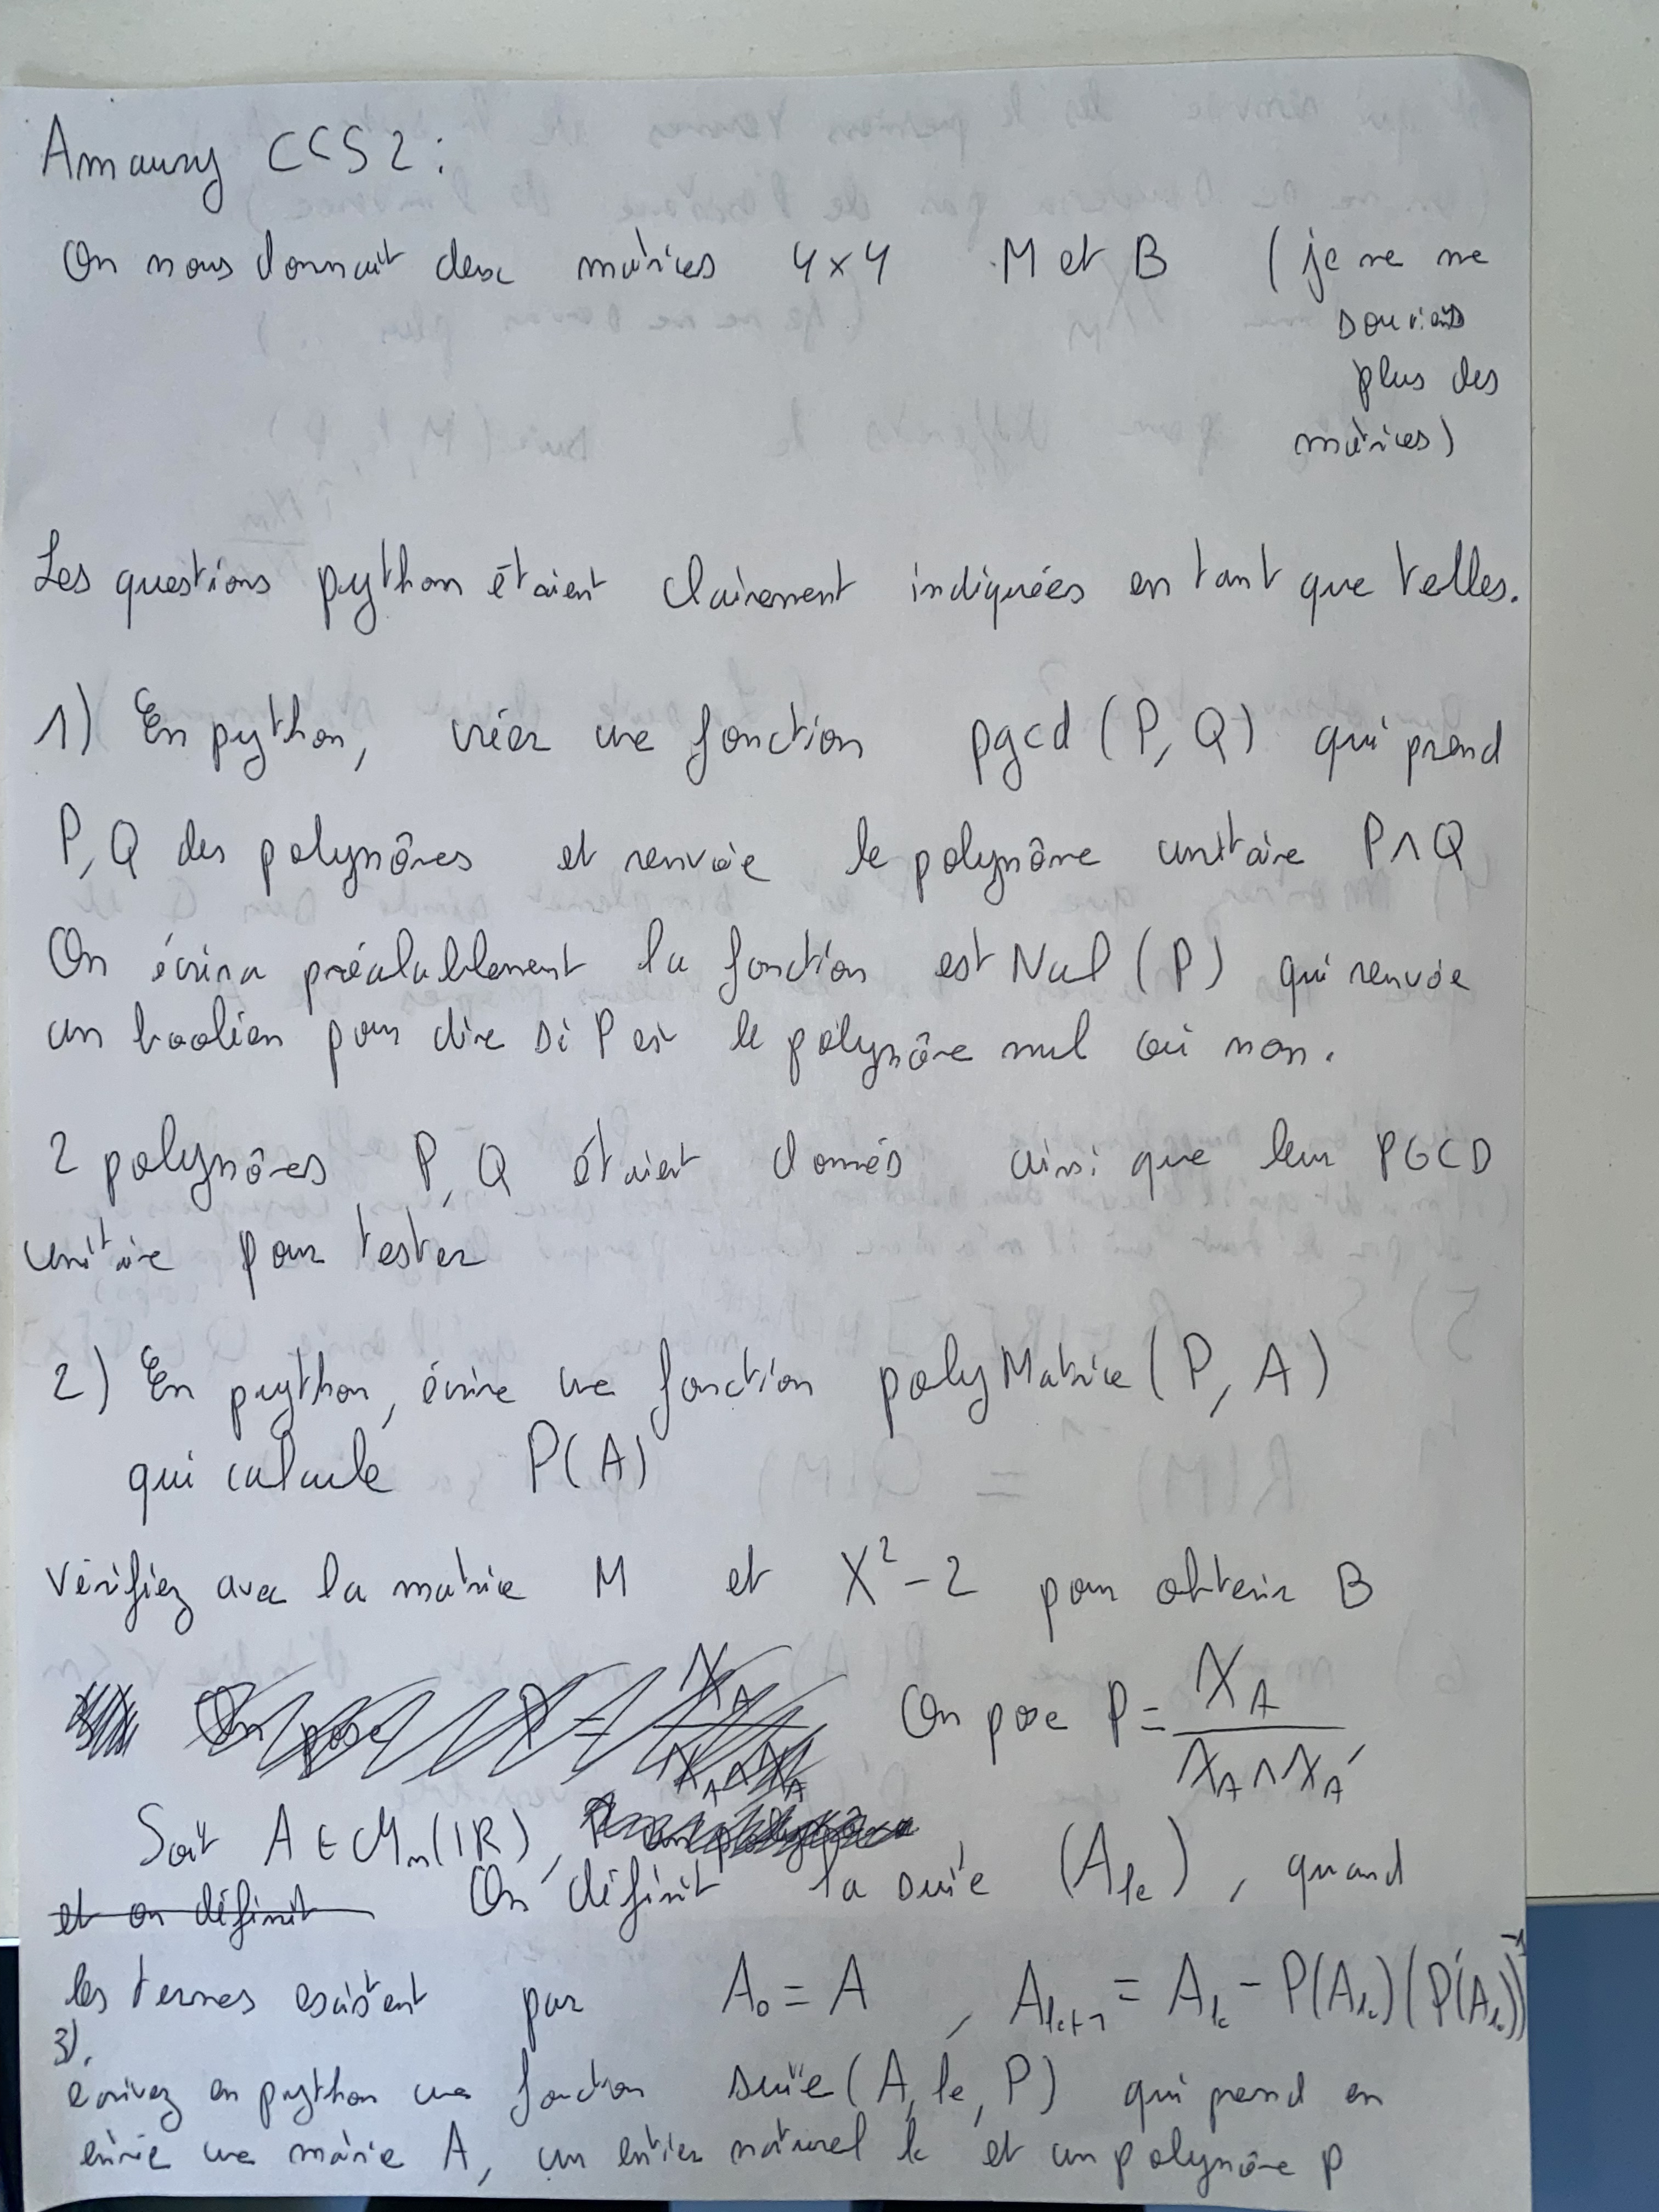 Amaury CCS2 :
On nous donnait deux matrices 4x4 M et B (je ne me
souviens
plus des
matrices)
Les questions python étaient clairement indiquées en tant que telles.
1) En python, créer une fonction pgcd (P, Q) qui prend
P, Q des polynômes et renvoie le polynôme unitaire P∧Q
On écrira préalablement la fonction estNul (P) qui renvoie
un booléen pour dire si P est le polynôme nul ou non.
2 polynômes P, Q étaient donnés ainsi que leur PGCD
unitaire pour tester
2) En python, écrire une fonction polyMatrice (P, A)
qui calcule P(A)
Vérifiez avec la matrice M et X² - 2 pour obtenir B
On pose P = χ_A / (χ_A ∧ χ_A')
Soit A ∈ M_n(IR), On définit la suite (A_k), quand
et on définit
les termes existent par A_0 = A , A_{k+1} = A_k - P(A_k) (P'(A_k))^{-1}
3).
écrivez en python une fonction suite (A, k, P) qui prend en
entrée une matrice A, un entier naturel k et un polynôme P